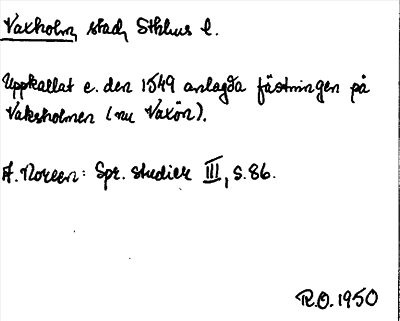 Vaxholm, stad, Sthlms l.
Uppkallat e. den 1549 anlagda fästningen på
Vaksholmen (nu Vaxön).
A. Noreen: Spr. studier III, s. 86.
R.O. 1950